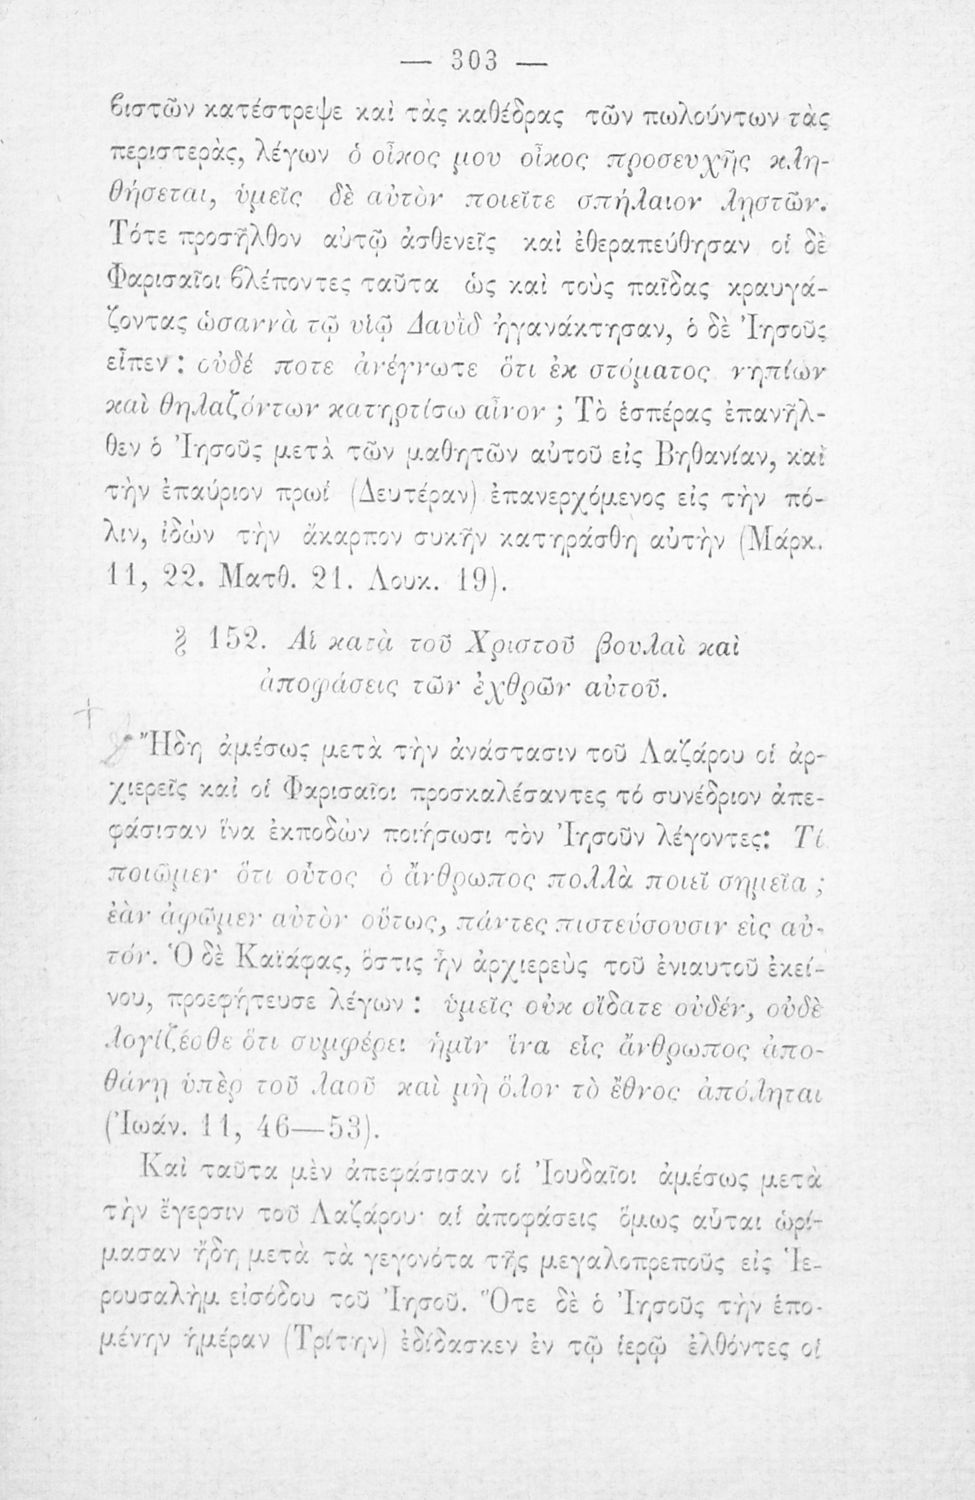 — 303 —
βιστῶν κατέστρεψε καὶ τὰς καθέδρας τῶν πωλούντων τὰς
περιστερὰς, λέγων ὁ οἶκος μου οἶκος προσευχῆς κλη-
θήσεται, ὑμεῖς δὲ αὐτὸν ποιεῖτε σπήλαιον ληστῶν.
Τότε προσῆλθον αὐτῷ ἀσθενεῖς καὶ ἐθεραπεύθησαν οἱ δὲ
Φαρισαῖοι βλέποντες ταῦτα ὡς καὶ τοὺς παῖδας κραυγά-
ζοντας ὡσαννὰ τῷ υἱῷ Δαυὶδ ἠγανάκτησαν, ὁ δὲ Ἰησοῦς
εἶπεν : οὐδέ ποτε ἀνέγνωτε ὅτι ἐκ στόματος νηπίων
καὶ θηλαζόντων κατηρτίσω αἶνον ; Τὸ ἑσπέρας ἐπανῆλ-
θεν ὁ Ἰησοῦς μετὰ τῶν μαθητῶν αὐτοῦ εἰς Βηθανίαν, καὶ
τὴν ἐπαύριον πρωΐ (Δευτέραν) ἐπανερχόμενος εἰς τὴν πό-
λιν, ἰδὼν τὴν ἄκαρπον συκῆν κατηράσθη αὐτὴν (Μάρκ.
11, 22. Ματθ. 21. Λουκ. 19).
§ 152. Αἱ κατὰ τοῦ Χριστοῦ βουλαὶ καὶ
ἀποφάσεις τῶν ἐχθρῶν αὐτοῦ.
Ἤδη ἀμέσως μετὰ τὴν ἀνάστασιν τοῦ Λαζάρου οἱ ἀρ-
χιερεῖς καὶ οἱ Φαρισαῖοι προσκαλέσαντες τό συνέδριον ἀπε-
φάσισαν ἵνα ἐκποδὼν ποιήσωσι τὸν Ἰησοῦν λέγοντες: Τί
ποιῶμεν ὅτι οὗτος ὁ ἄνθρωπος πολλὰ ποιεῖ σημεῖα ;
ἐὰν ἀφῶμεν αὐτὸν οὕτως, πάντες πιστεύσουσιν εἰς αὐ-
τόν. Ὁ δὲ Καϊάφας, ὅστις ἦν ἀρχιερεὺς τοῦ ἐνιαυτοῦ ἐκεί-
νου, προεφήτευσε λέγων : ὑμεῖς οὐκ οἴδατε οὐδέν, οὐδὲ
λογίζέσθε ὅτι συμφέρει ἡμῖν ἵνα εἷς ἄνθρωπος ἀπο-
θάνῃ ὑπὲρ τοῦ λαοῦ καὶ μὴ ὅλον τὸ ἔθνος ἀπόληται
(Ἰωάν. 11, 46—53).
Καὶ ταῦτα μὲν ἀπεφάσισαν οἱ Ἰουδαῖοι ἀμέσως μετὰ
τὴν ἔγερσιν τοῦ Λαζάρου· αἱ ἀποφάσεις ὅμως αὗται ὡρί-
μασαν ἤδη μετὰ τὰ γεγονότα τῆς μεγαλοπρεποῦς εἰς Ἱε-
ρουσαλὴμ εἰσόδου τοῦ Ἰησοῦ. Ὅτε δὲ ὁ Ἰησοῦς τὴν ἑπο-
μένην ἡμέραν (Τρίτην) ἐδίδασκεν ἐν τῷ ἱερῷ ἐλθόντες οἱ